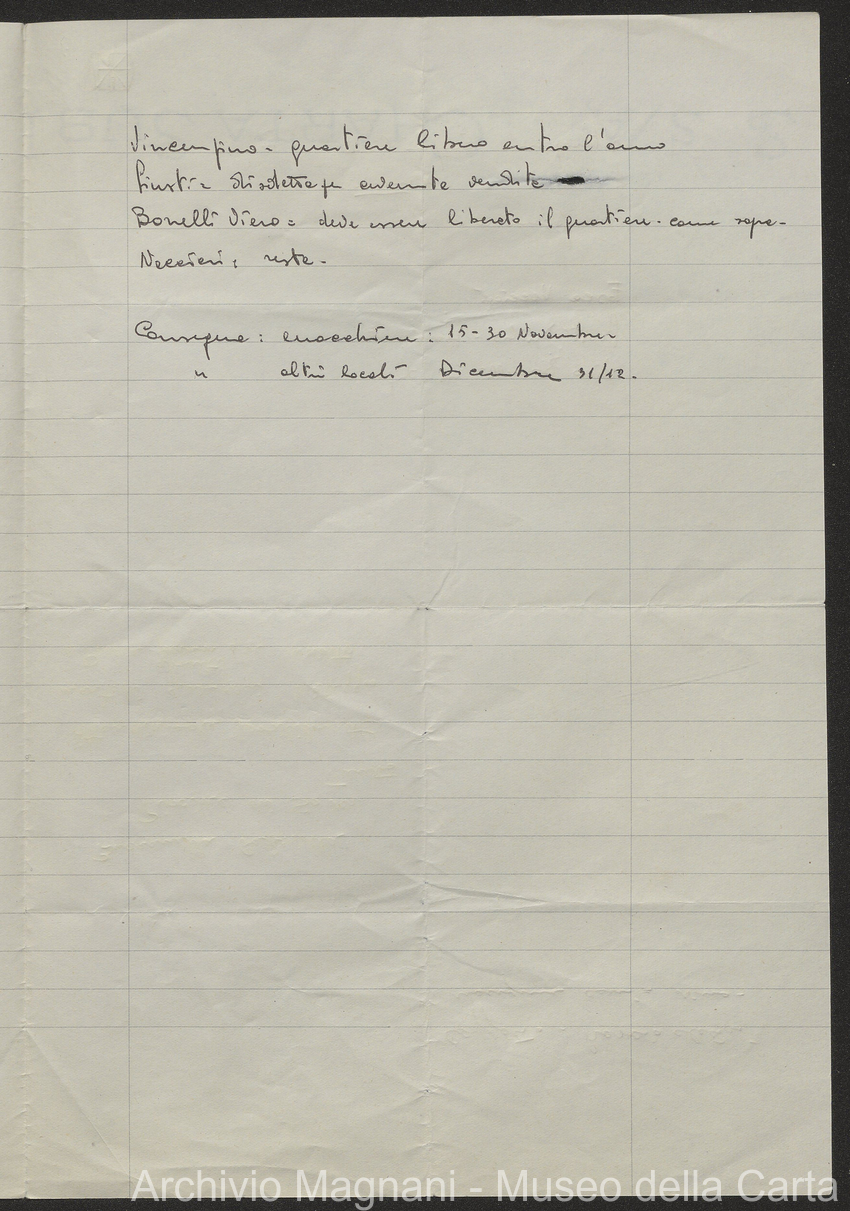 quartiere libero entro l'anno
Giusti = disdetta avvenuta vendita
Bonelli Piero = deve essere liberato il quartiere - come sopra -
resta -
Consegna : macchine : 15-30 Novembre
" altri locali Dicembre 31/12.
Archivio Magnani - Museo della Carta